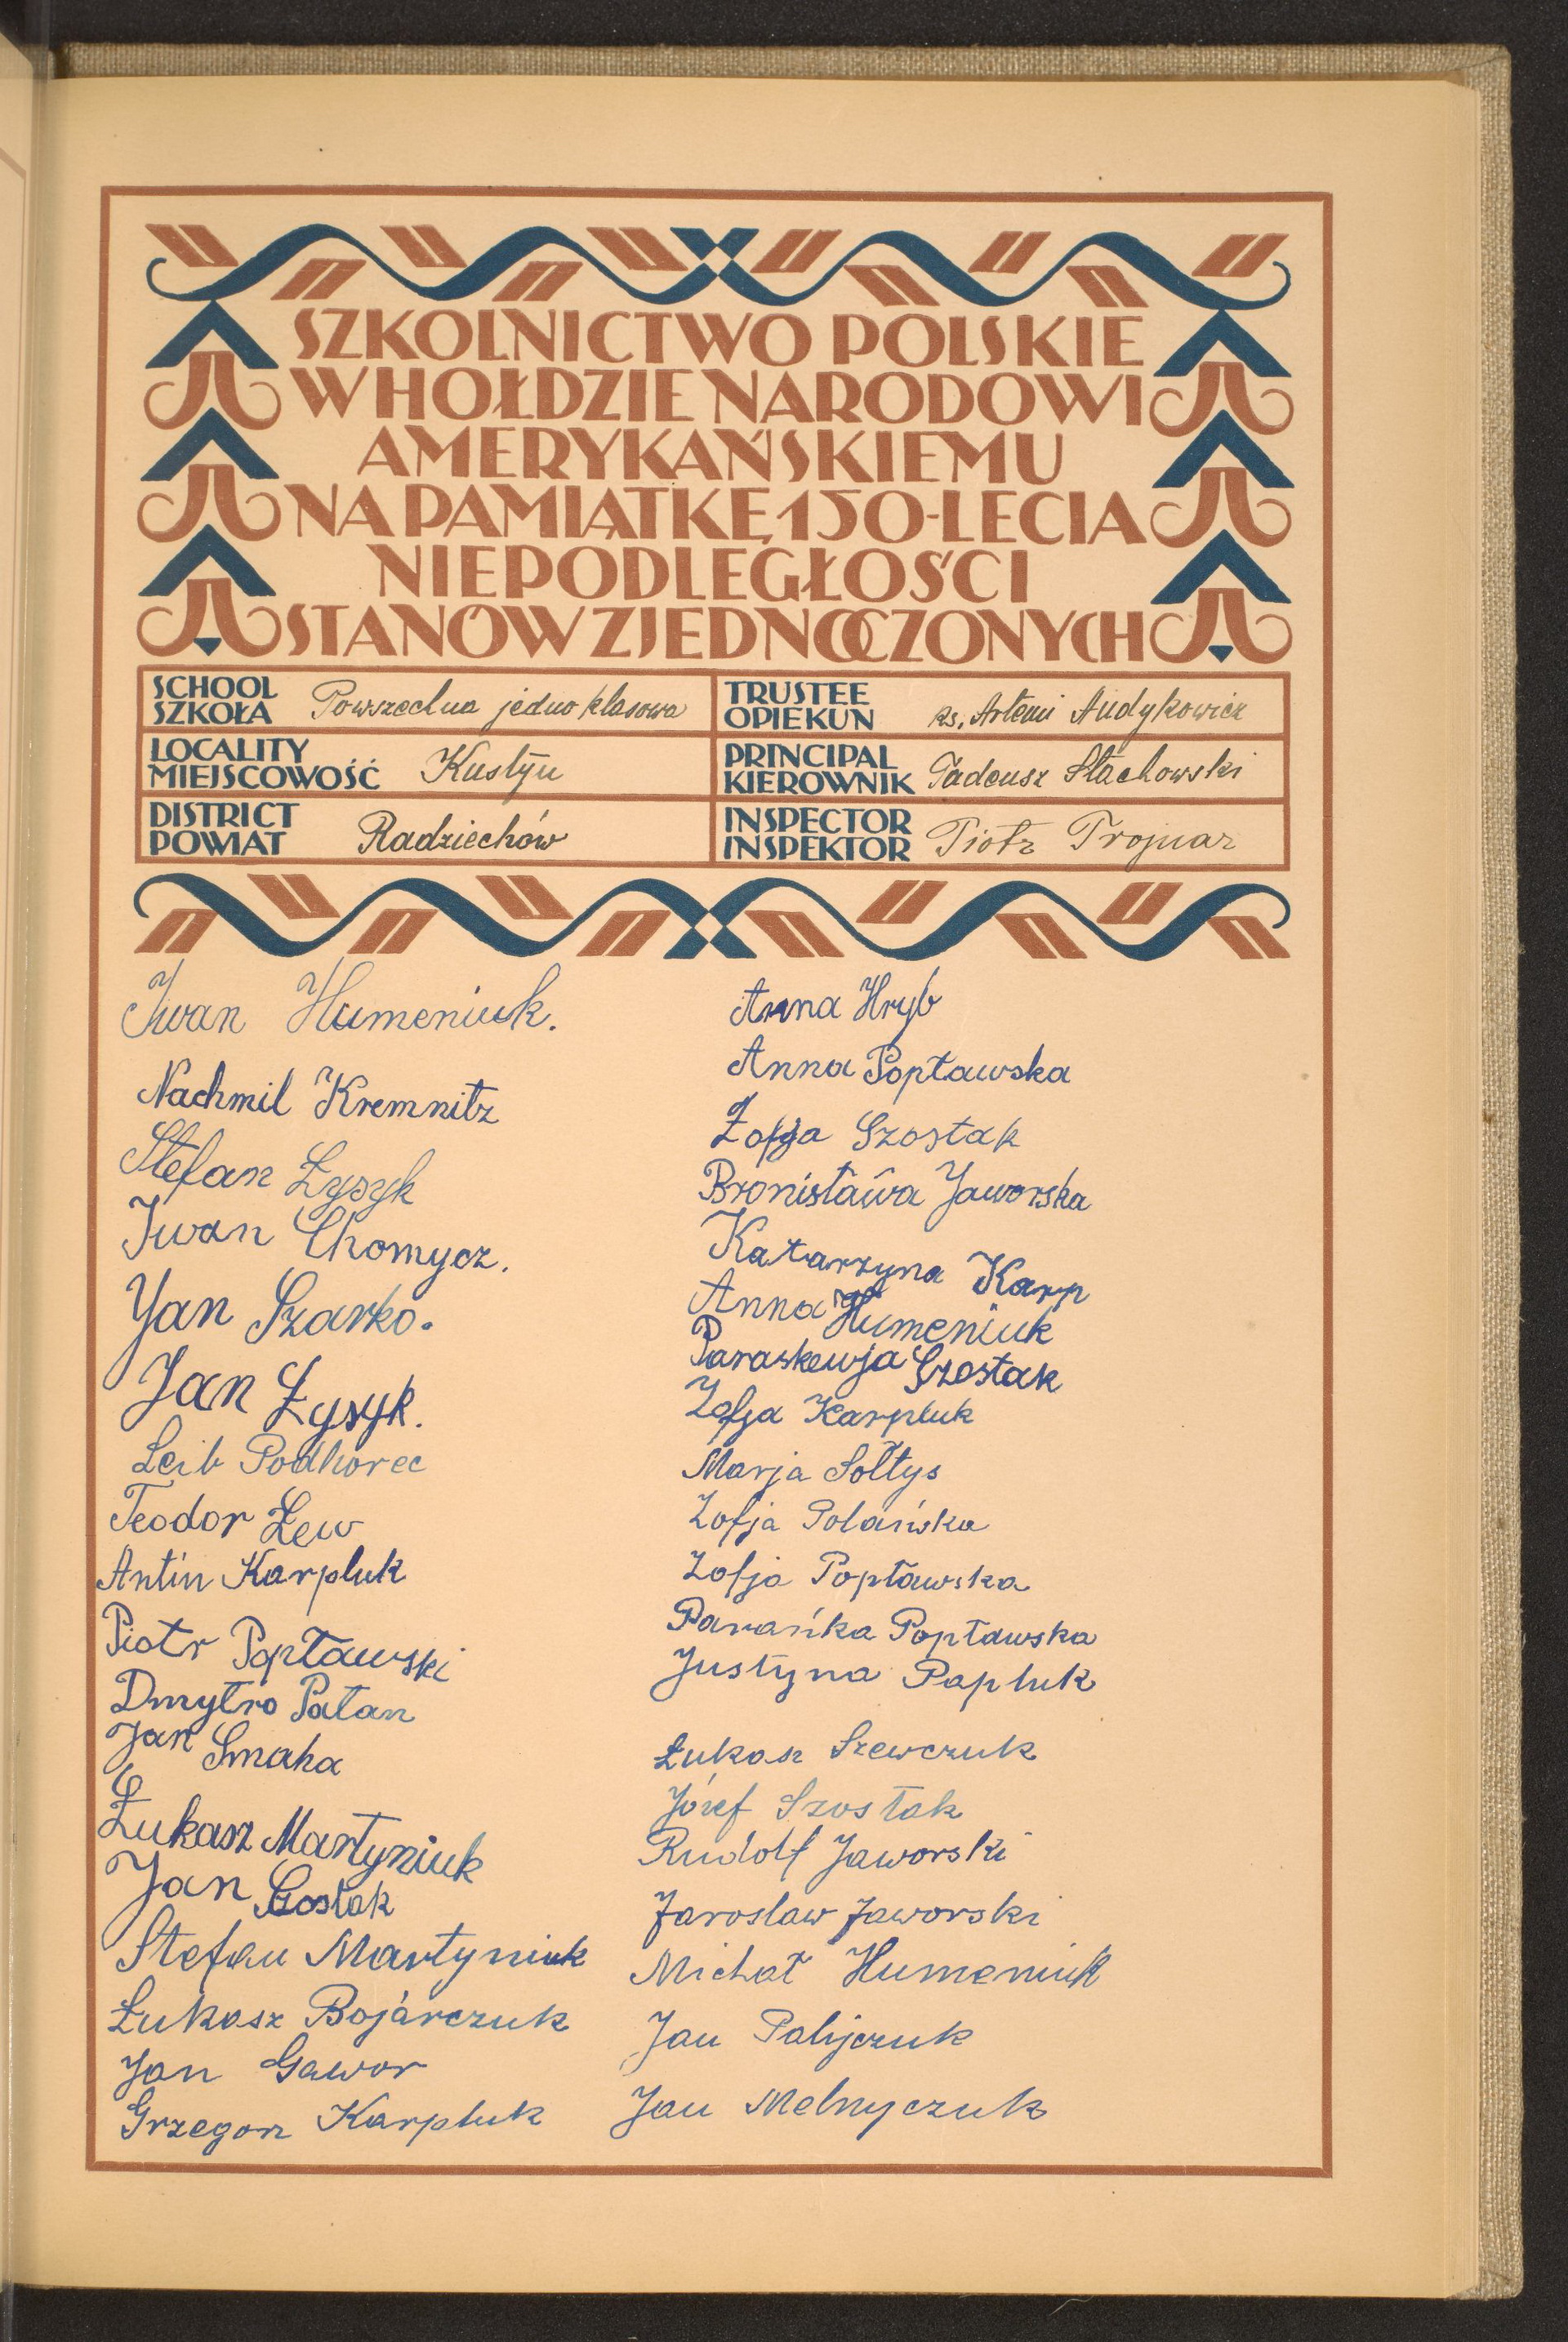 SZKOLNICTWO POLSKIE
W HOŁDZIE NARODOWI
AMERYKAŃSKIEMU
NA PAMIĄTKĘ 150-LECIA
NIEPODLEGŁOŚCI
STANÓW ZJEDNOCZONYCH
SCHOOL
SZKOŁA
Powszechna jednoklasowa
TRUSTEE
OPIEKUN
ks. Artemi Andykowicz
LOCALITY
MIEJSCOWOŚĆ
Kustyn
PRINCIPAL
KIEROWNIK
Tadeusz Stachowski
DISTRICT
POWIAT
Radziechów
INSPECTOR
INSPEKTOR
Piotr Trojnar
Iwan Humeniuk.
Nachmil Kremnitz
Stefan Łysyk
Iwan Chomycz.
Yan Szarko.
Jan Łysyk.
Leib Podhorec
Teodor Lew
Antin Karpluk
Piotr Popławski
Dmytro Pałan
Jan Smaha
Łukasz Martyniuk
Jan Szostak
Stefan Martyniuk
Łukasz Bojarczuk
Jan Gawor
Grzegorz Karpluk
Anna Hryb
Anna Popławska
Zofja Szostak
Bronisława Jaworska
Katarzyna Karp
Anna Humeniuk
Paraskewja Szostak
Zofja Karpluk
Marja Sołtys
Zofja Polańska
Zofja Popławska
Parańka Popławska
Justyna Papluk
Łukasz Szewczuk
Józef Szostak
Rudolf Jaworski
Jarosław Jaworski
Michał Humeniuk
Jan Palijczuk
Jan Melnyczuk